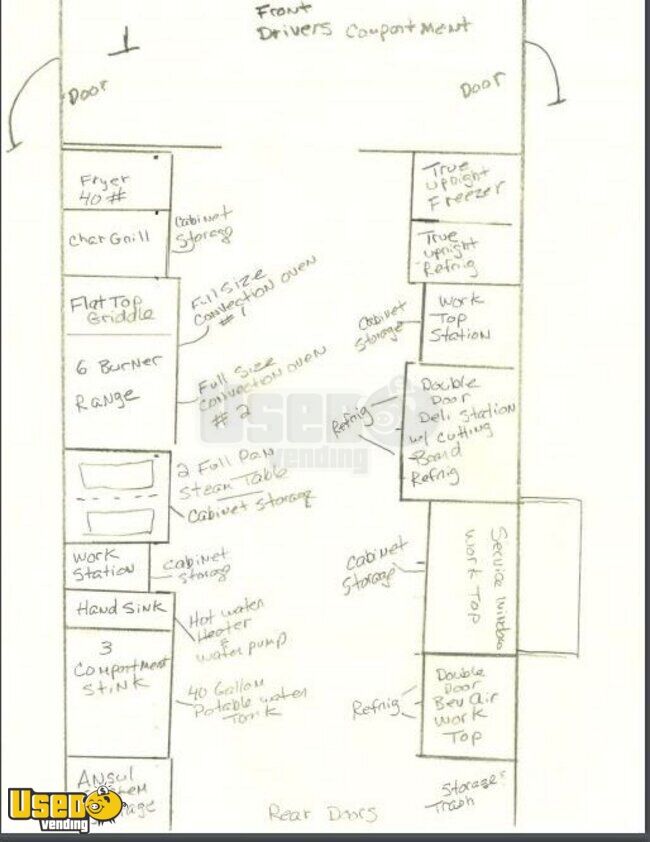 Front
Drivers Compartment
1
Door
Door
Fryer
40 #
Char Grill
Cabinet
Storage
Flat Top
Griddle
Full Size
Convection Oven
# 1
6 Burner
Range
Full Size
Convection Oven
# 2
2 Full Pan
Steam Table
Cabinet Storage
Work
Station
Cabinet
Storage
Hand Sink
Hot water
Heater
&
water pump
3
Compartment
Stink
40 Gallon
Potable water
Tank
Ansul
System
Storage
True
upright
Freezer
True
upright
Refrig
Work
Top
Station
Cabinet
Storage
Double
Door
Deli Station
w/ Cutting
Board
Refrig
Refrig
Service Window
Work Top
Cabinet
Storage
Double
Door
Bev Air
Work
Top
Refrig
Storage
Trash
Rear Doors
USED
vending
USED
vending